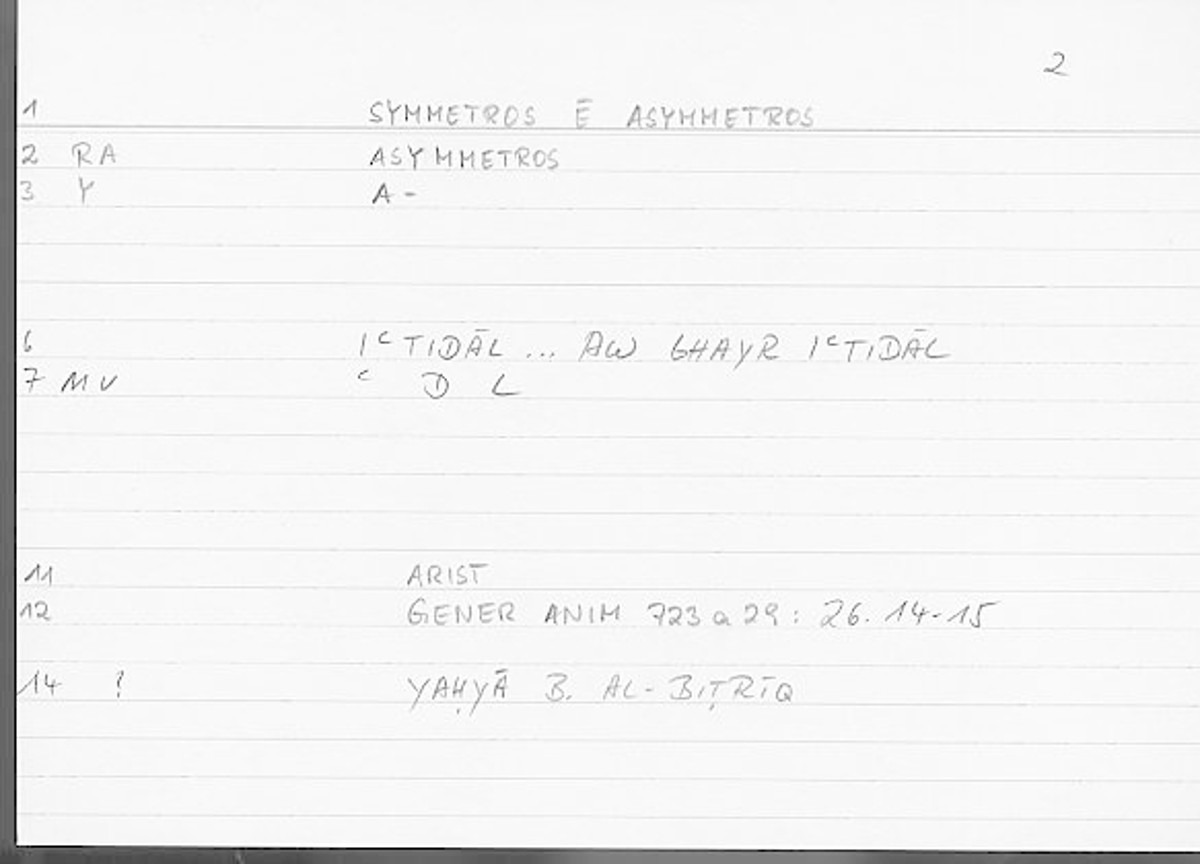 2
1 SYMMETROS Ē ASYMMETROS
2 RA ASYMMETROS
3 Y A-
6 IᶜTIDĀL ... AW GHAYR IᶜTIDĀL
7 MV ᶜ D L
11 ARIST
12 GENER ANIM 723 a 29 : 26. 14-15
14 ? YAḤYĀ B. AL-BIṬRĪQ